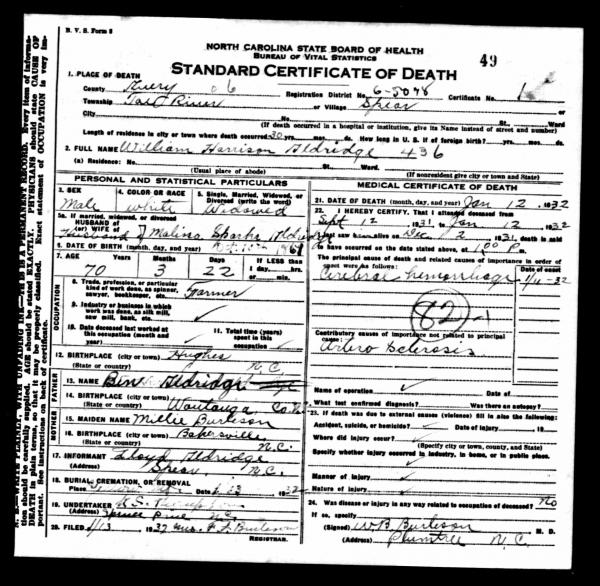 B. V. S. Form 8
NORTH CAROLINA STATE BOARD OF HEALTH
BUREAU OF VITAL STATISTICS
49
STANDARD CERTIFICATE OF DEATH
1. PLACE OF DEATH
County Avery 06 Registration District No. 6-5078 Certificate No. 1
Township Toe River or Village Spear
City No. St. Ward
(If death occurred in a hospital or institution, give its Name instead of street and number)
Length of residence in city or town where death occurred 30 yrs. mos. ds. How long in U. S. if of foreign birth? yrs. mos. ds.
2. FULL NAME William Harrison Aldridge 436
(a) Residence: No. St. Ward
(Usual place of abode) (If nonresident give city or town and State)
PERSONAL AND STATISTICAL PARTICULARS
3. SEX Male
4. COLOR OR RACE white
5. Single, Married, Widowed, or Divorced (write the word) Widowed
5a. If married, widowed, or divorced
HUSBAND of
(or) WIFE of Husband of Malina Sparks Aldridge
6. DATE OF BIRTH (month, day, and year) 1861
7. AGE 70 3 22
Years Months Days If LESS than
1 day, hrs.
or min.
OCCUPATION
8. Trade, profession, or particular
kind of work done, as spinner,
sawyer, bookkeeper, etc. Farmer
9. Industry or business in which
work was done, as silk mill,
saw mill, bank, etc.
10. Date deceased last worked at
this occupation (month and
year)
11. Total time (years)
spent in this
occupation
12. BIRTHPLACE (city or town) Hughes
(State or country) N.C.
FATHER
13. NAME Ben Aldridge
14. BIRTHPLACE (city or town)
(State or country) Watauga Co. N.C.
MOTHER
15. MAIDEN NAME Millie Burleson
16. BIRTHPLACE (city or town) Bakersville
(State or country) N.C.
17. INFORMANT Lloyd Aldridge
(Address) Spear, N.C.
18. BURIAL, CREMATION, OR REMOVAL
Place Date 1/13 1932
19. UNDERTAKER
(Address) Spruce Pine N.C.
20. FILED 1/13 1932 Mrs. F. L. Burleson
REGISTRAR.
MEDICAL CERTIFICATE OF DEATH
21. DATE OF DEATH (month, day, and year) Jan 12, 1932
22. I HEREBY CERTIFY, That I attended deceased from
Sept 12 1931, to Jan 12 1932
I last saw him alive on Dec 2 1931, death is said
to have occurred on the date stated above, at 1:00 P. m.
The principal cause of death and related causes of importance in order of
onset were as follows: Date of onset
Cerebral hemorrhage 1/11-32
82 1
Contributory causes of importance not related to principal
cause:
Arterio Sclerosis
Name of operation Date of
What test confirmed diagnosis? Was there an autopsy?
23. If death was due to external causes (violence) fill in also the following:
Accident, suicide, or homicide? Date of injury 19
Where did injury occur?
(Specify city or town, county, and State)
Specify whether injury occurred in industry, in home, or in public place.
Manner of injury
Nature of injury
24. Was disease or injury in any way related to occupation of deceased? No
If so, specify
(Signed) W.B. Burleson M. D.
(Address) Plumtree N.C.